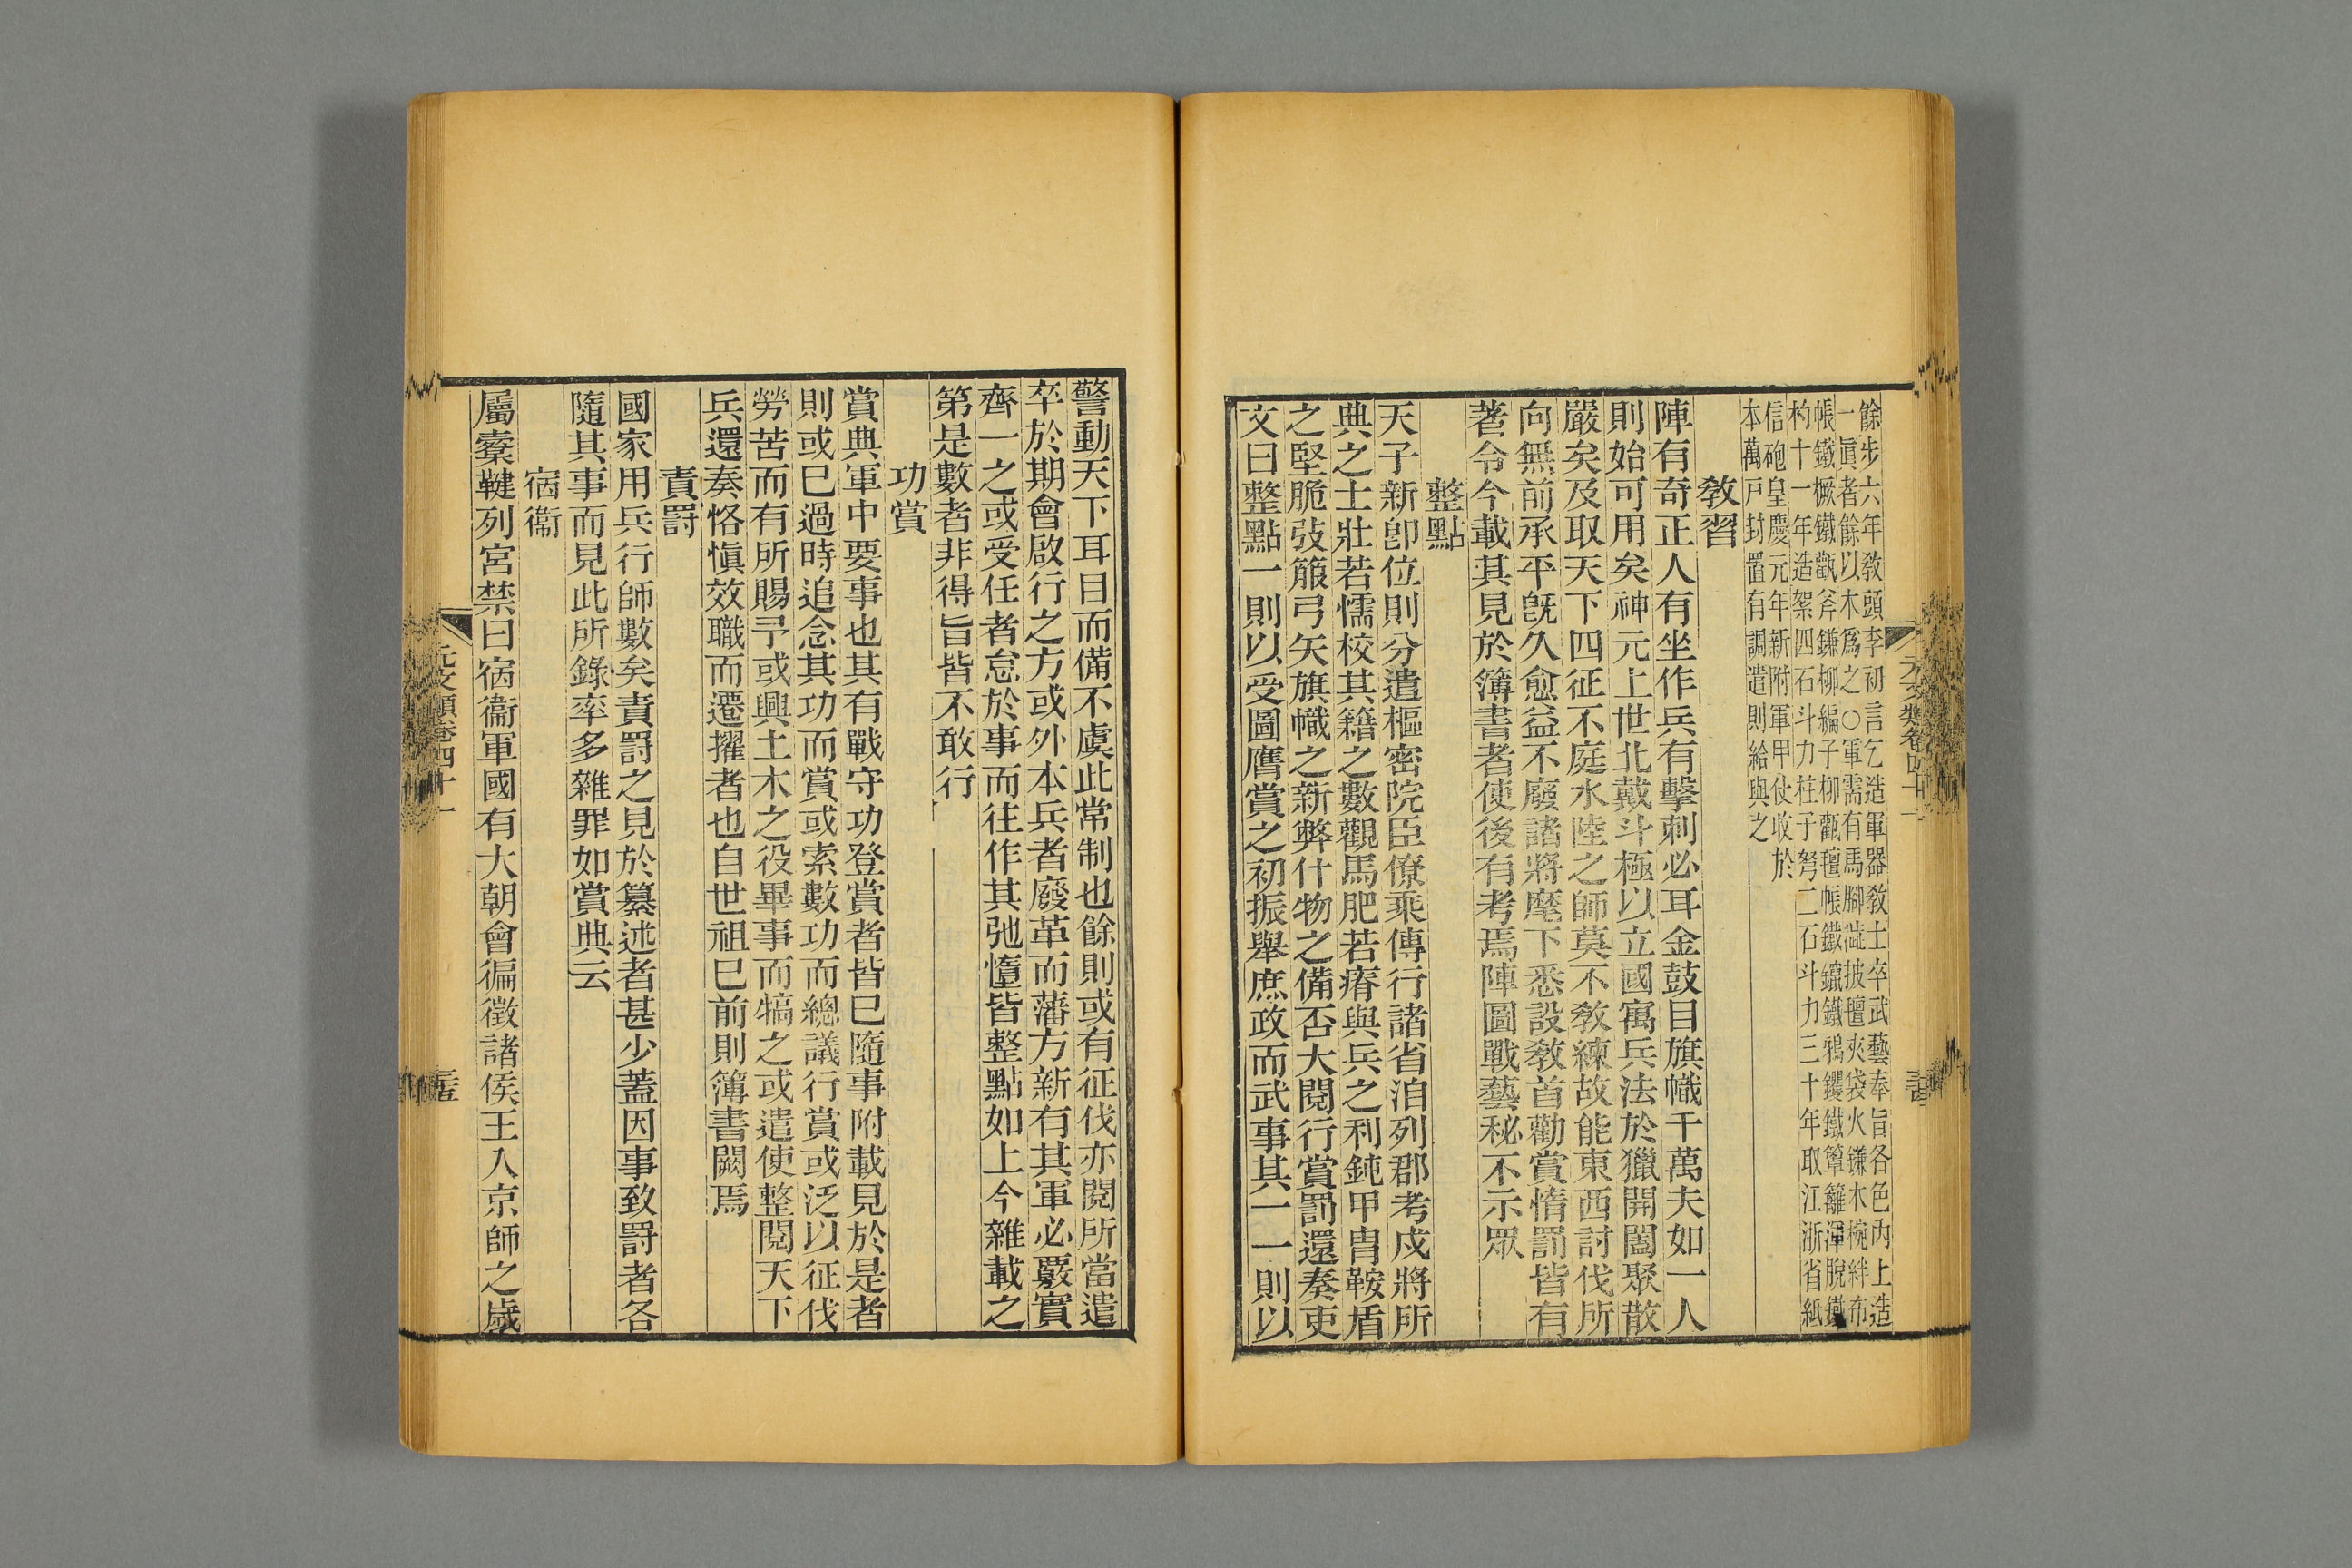 餘步六年敎頭李初言乞造軍器敎士卒武藝奉旨各色內上造
一眞者餘以木爲之○軍需有馬腳澁披氊夾袋火鐮木椀絆布
帳鐵橛鐵㽅斧鐮柳編子柳㽅氊帳鐵鑹鐵鴉钁鐵簞籬渾脫
杓十一年造絮四石斗力柱子弩二石斗力三十年取江浙省紙
信砲皇慶元年新附軍甲仗收於
本萬戸封置有調遣則給與之
敎習
陣有奇正人有坐作兵有擊刺必耳金鼓目旗幟千萬夫如一人
則始可用矣神元上世北戴斗極以立國寓兵法於獵開闔聚散
嚴矣及取天下四征不庭水陸之師莫不敎練故能東西討伐所
向無前承平旣久愈益不廢諸將麾下悉設敎首勸賞惰罰皆有
著令今載其見於簿書者使後有考焉陣圖戰藝秘不示眾
整點
天子新卽位則分遣樞密院臣僚乘傳行諸省洎列郡考戍將所
典之士壯若懦校其籍之數觀馬肥若瘠與兵之利鈍甲冑鞍盾
之堅脆弢箙弓矢旗幟之新弊什物之備否大閱行賞罰還奏吏
文曰整點一則以受圖膺賞之初振舉庶政而武事其一一則以
元文類卷四十一
警動天下耳目而備不虞此常制也餘則或有征伐亦閱所當遣
卒於期會啟行之方或外本兵者廢革而藩方新有其軍必覈實
齊一之或受任者怠於事而往作其弛惰皆整點如上今雜載之
第是數者非得旨皆不敢行
功賞
賞典軍中要事也其有戰守功登賞者皆巳隨事附載見於是者
則或巳過時追念其功而賞或索數功而總議行賞或泛以征伐
勞苦而有所賜予或興土木之役畢事而犒之或遣使整閱天下
兵還奏恪愼效職而遷擢者也自世祖巳前則簿書闕焉
責罰
國家用兵行師數矣責罰之見於纂述者甚少蓋因事致罰者各
隨其事而見此所錄率多雜罪如賞典云
宿衞
屬櫜鞬列宮禁曰宿衞軍國有大朝會徧徵諸侯王入京師之歲
元文類卷四十一